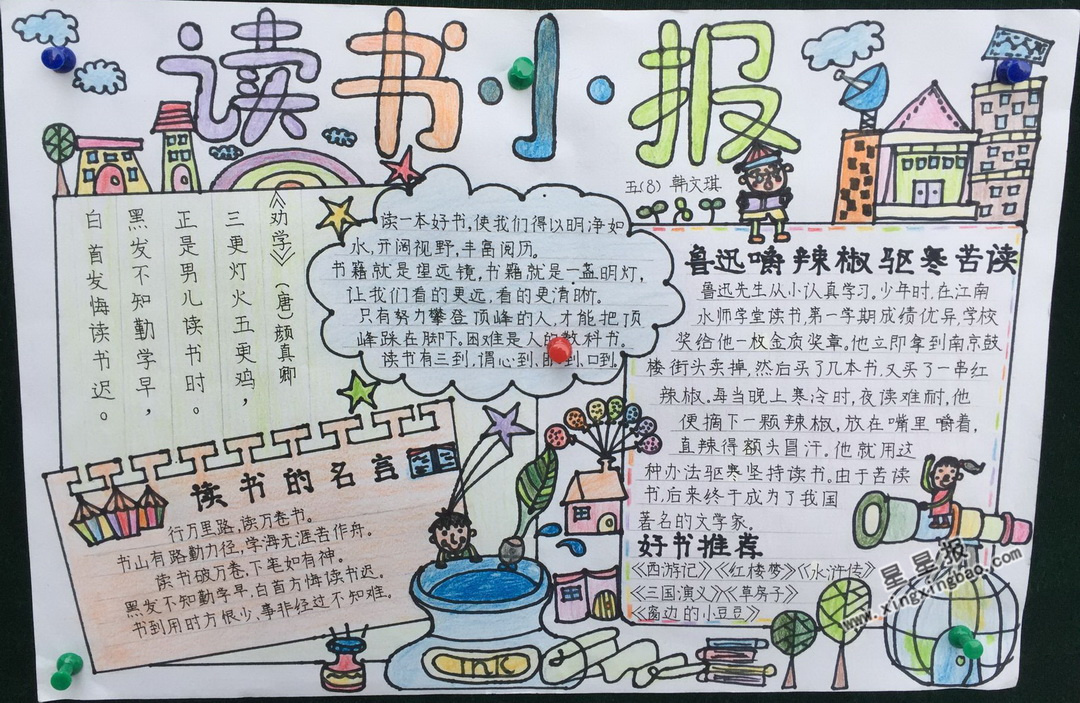 读书·小·报
五(8) 韩文琪
《劝学》
(唐)颜真卿
三更灯火五更鸡,
正是男儿读书时。
黑发不知勤学早,
白首发悔读书迟。
读一本好书,使我们得以明净如
水,开阔视野,丰富阅历。
书籍就是望远镜,书籍就是一盏明灯,
让我们看的更远,看的更清晰。
只有努力攀登顶峰的人,才能把顶
峰踩在脚下。困难是人的教科书。
读书有三到,谓心到、眼到、口到。
读书的名言
行万里路,读万卷书。
书山有路勤为径,学海无涯苦作舟。
读书破万卷,下笔如有神。
黑发不知勤学早,白首方悔读书迟。
书到用时方恨少、事非经过不知难。
鲁迅嚼辣椒驱寒苦读
鲁迅先生从小认真学习。少年时,在江南
水师学堂读书,第一学期成绩优异,学校
奖给他一枚金质奖章。他立即拿到南京鼓
楼街头卖掉,然后买了几本书,又买了一串红
辣椒。每当晚上寒冷时,夜读难耐,他
便摘下一颗辣椒,放在嘴里嚼着,
直辣得额头冒汗。他就用这
种办法驱寒坚持读书。由于苦读
书,后来终于成为了我国
著名的文学家。
好书推荐
《西游记》《红楼梦》《水浒传》
《三国演义》《草房子》
《窗边的小豆豆》
INK
星星报
www.xingxingbao.com